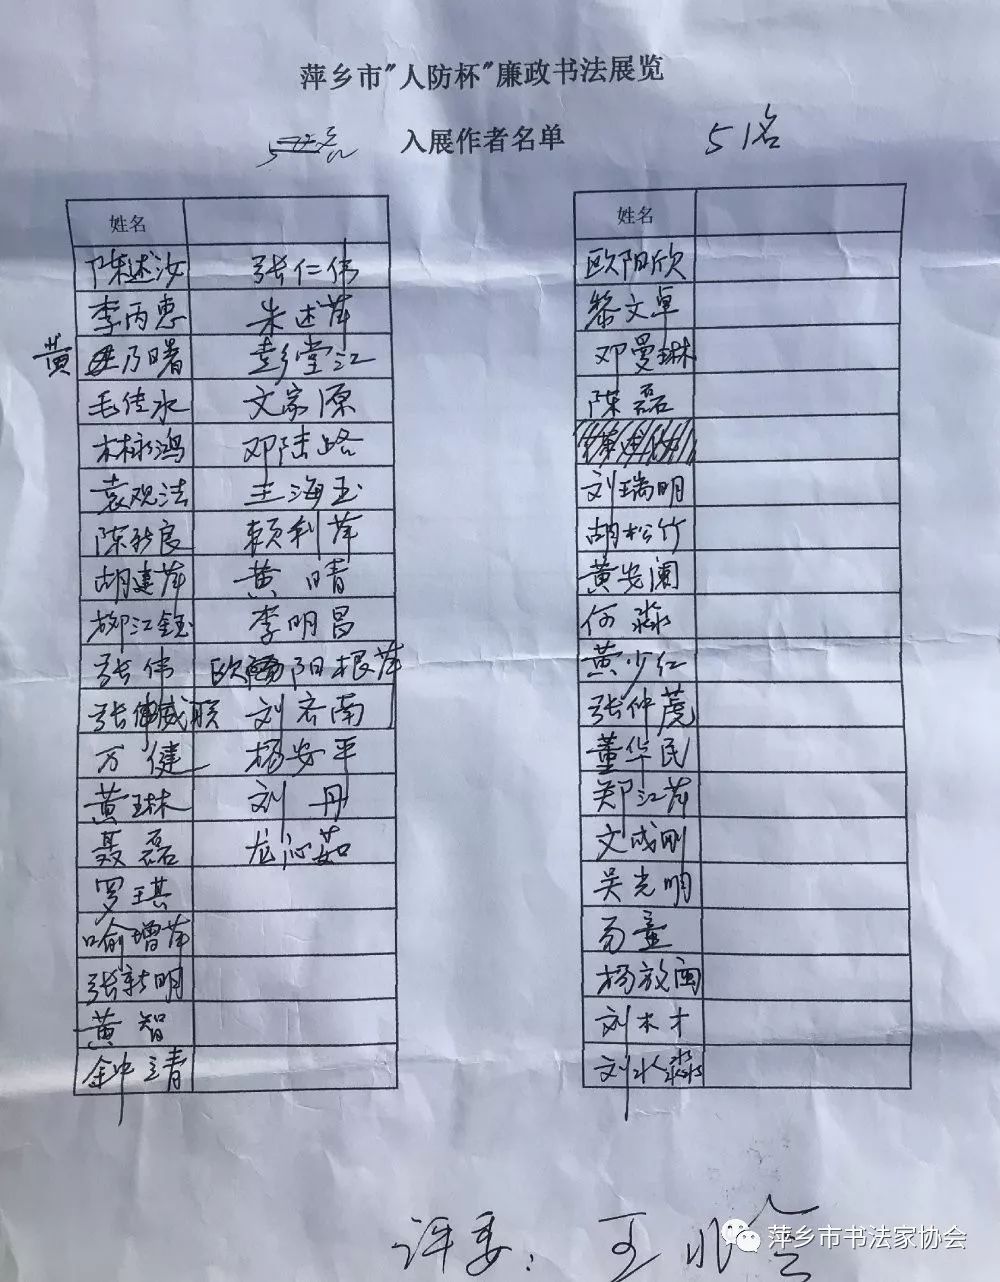 萍乡市"人防杯"廉政书法展览
入展作者名单 51名
姓名 姓名
陈述汝 张仁伟 欧阳欣
李丙惠 朱述萍 黎文卓
黄乃曙 彭堂江 邓曼琳
毛传水 文家源 陈磊
林栐鸿 邓陆路
袁观法 王海玉 刘瑞明
陈新良 赖利萍 胡松竹
胡建萍 黄晴 黄安阑
柳江钰 李明昌 何淼
张伟 欧阳根萍 黄少红
张威联 刘齐南 张仲虎
万健 杨安平 董华民
黄琳 刘丹 郑江萍
聂磊 龙沁茹 文成刚
罗琪 吴光明
喻增萍 易童
张新明 杨放闽
黄智 刘木才
钟立青 刘水淼
评委：王
萍乡市书法家协会